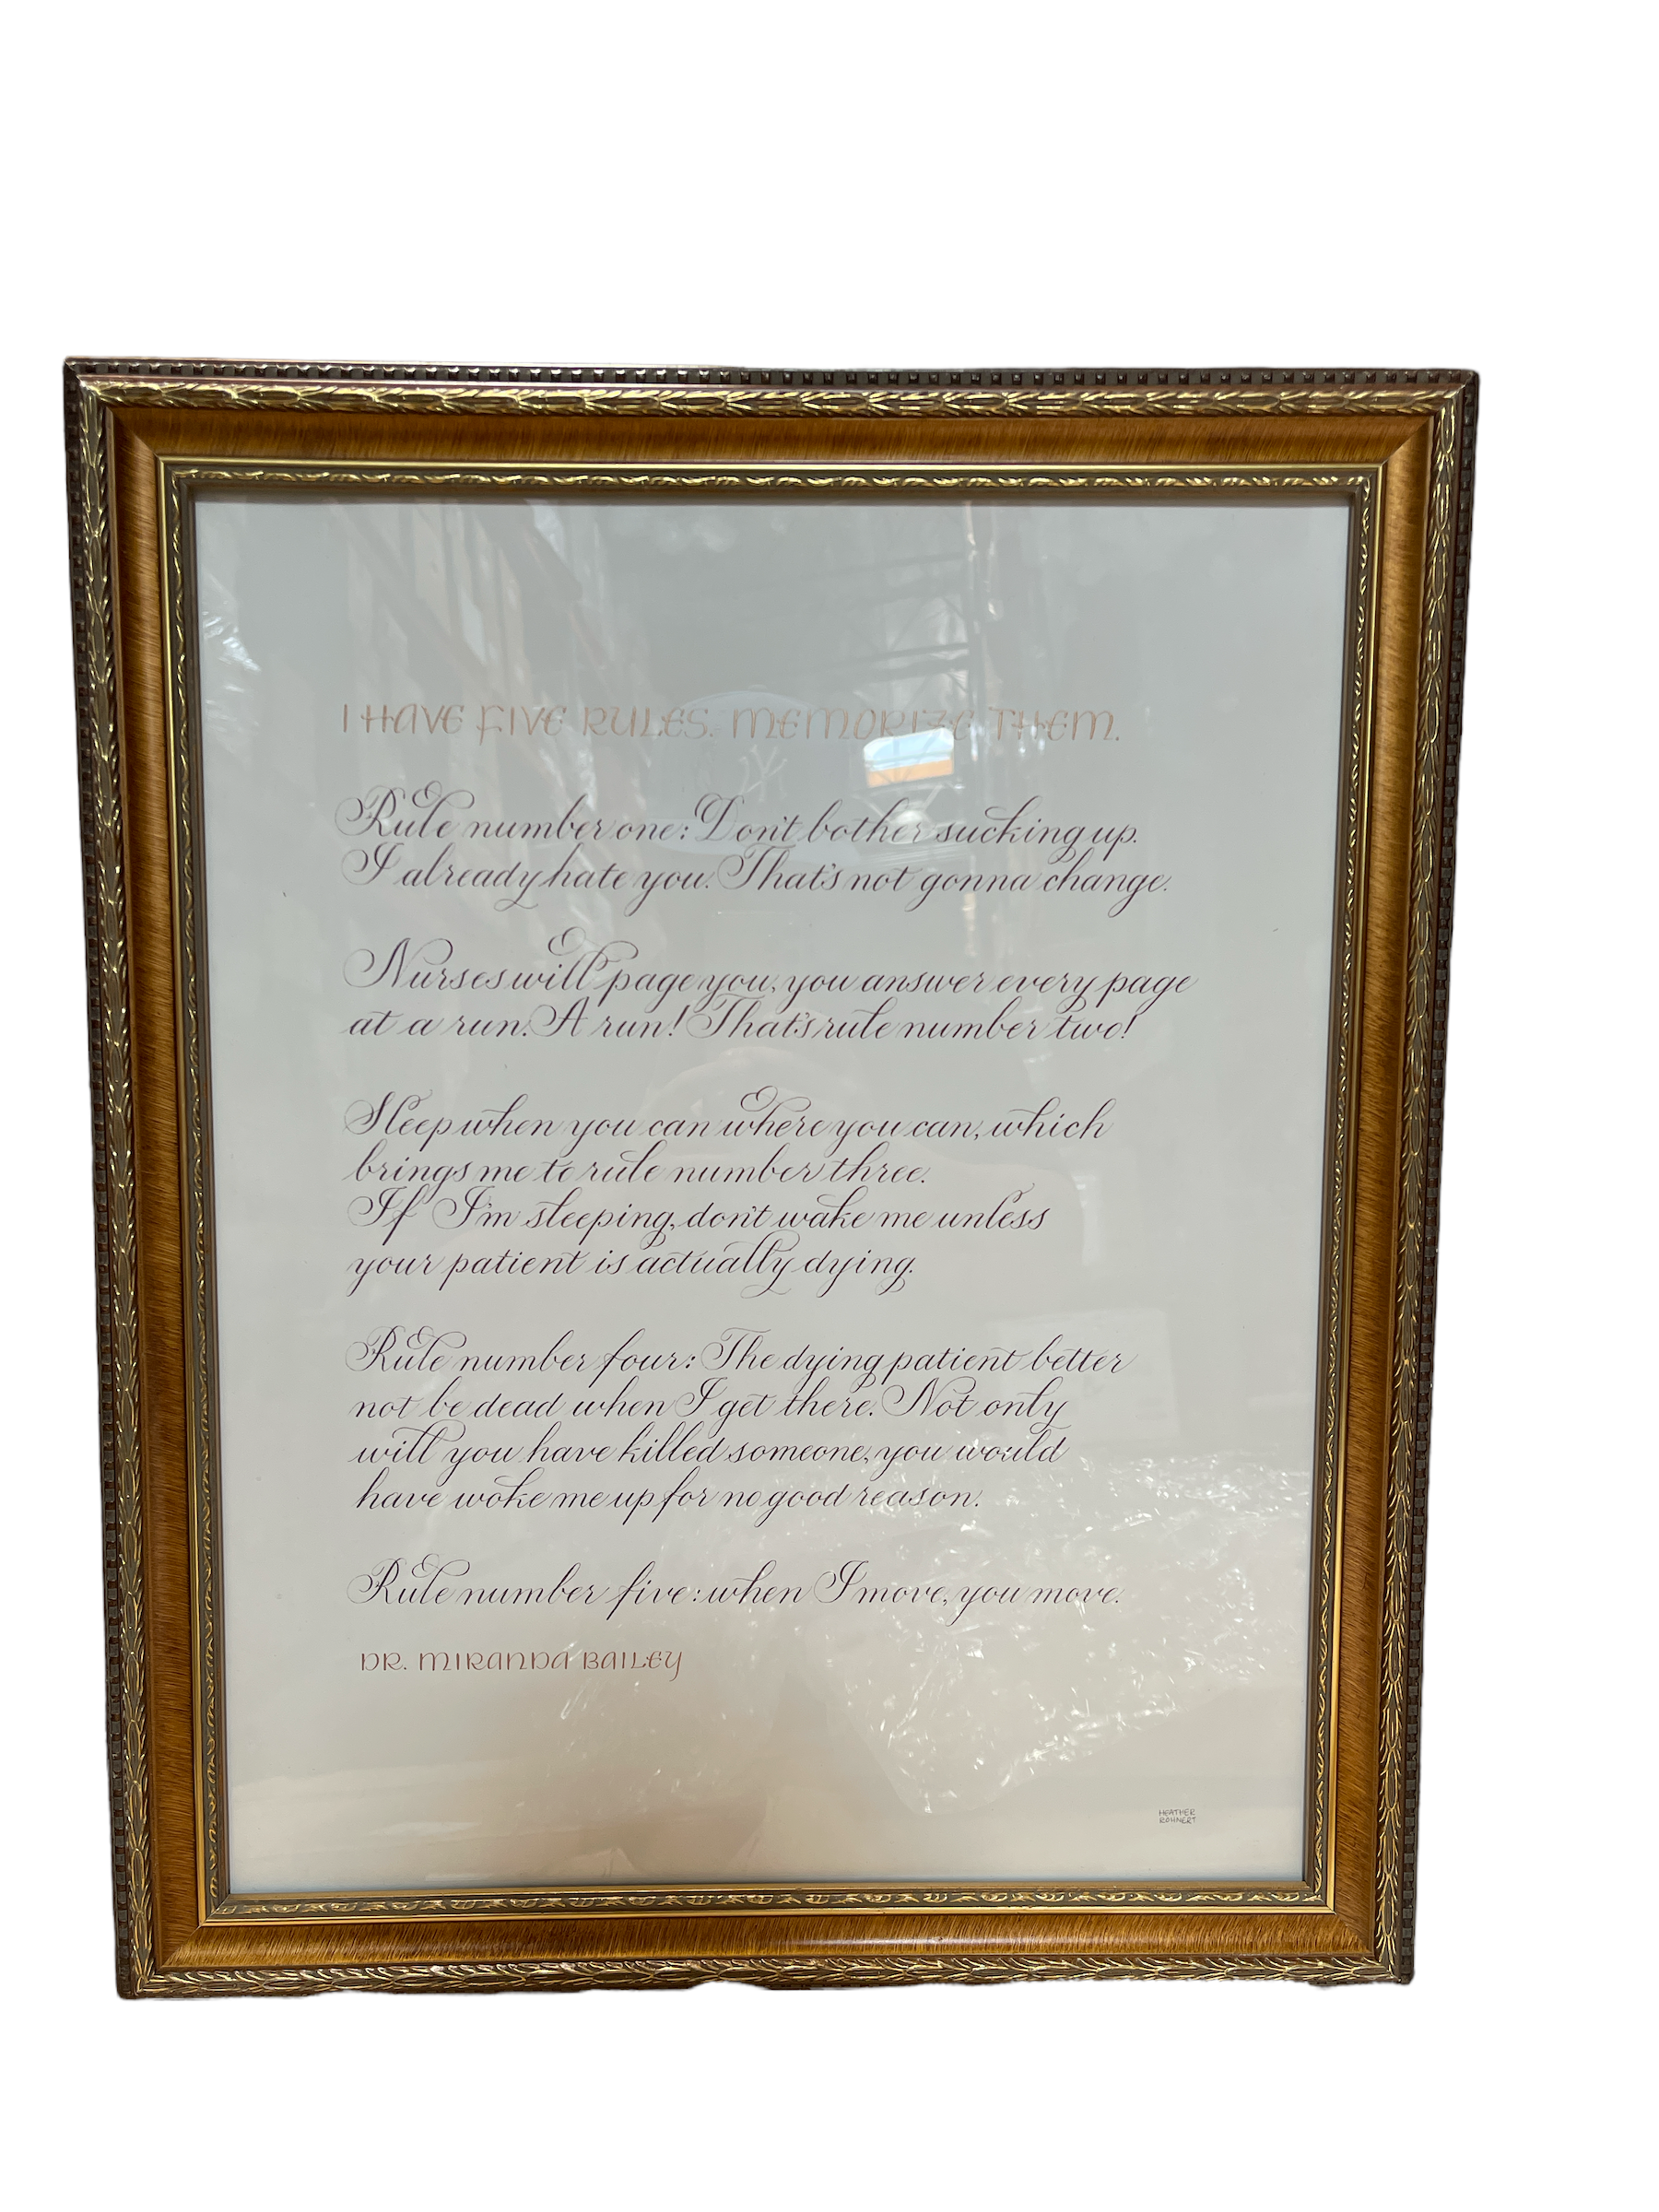 I HAVE FIVE RULES. MEMORIZE THEM.
Rule number one: Don't bother sucking up.
I already hate you. That's not gonna change.
Nurses will page you, you answer every page
at a run. A run! That's rule number two!
Sleep when you can where you can, which
brings me to rule number three.
If I'm sleeping, don't wake me unless
your patient is actually dying.
Rule number four: The dying patient better
not be dead when I get there. Not only
will you have killed someone, you would
have woke me up for no good reason.
Rule number five: when I move, you move.
DR. MIRANDA BAILEY
HEATHER
ROHNERT